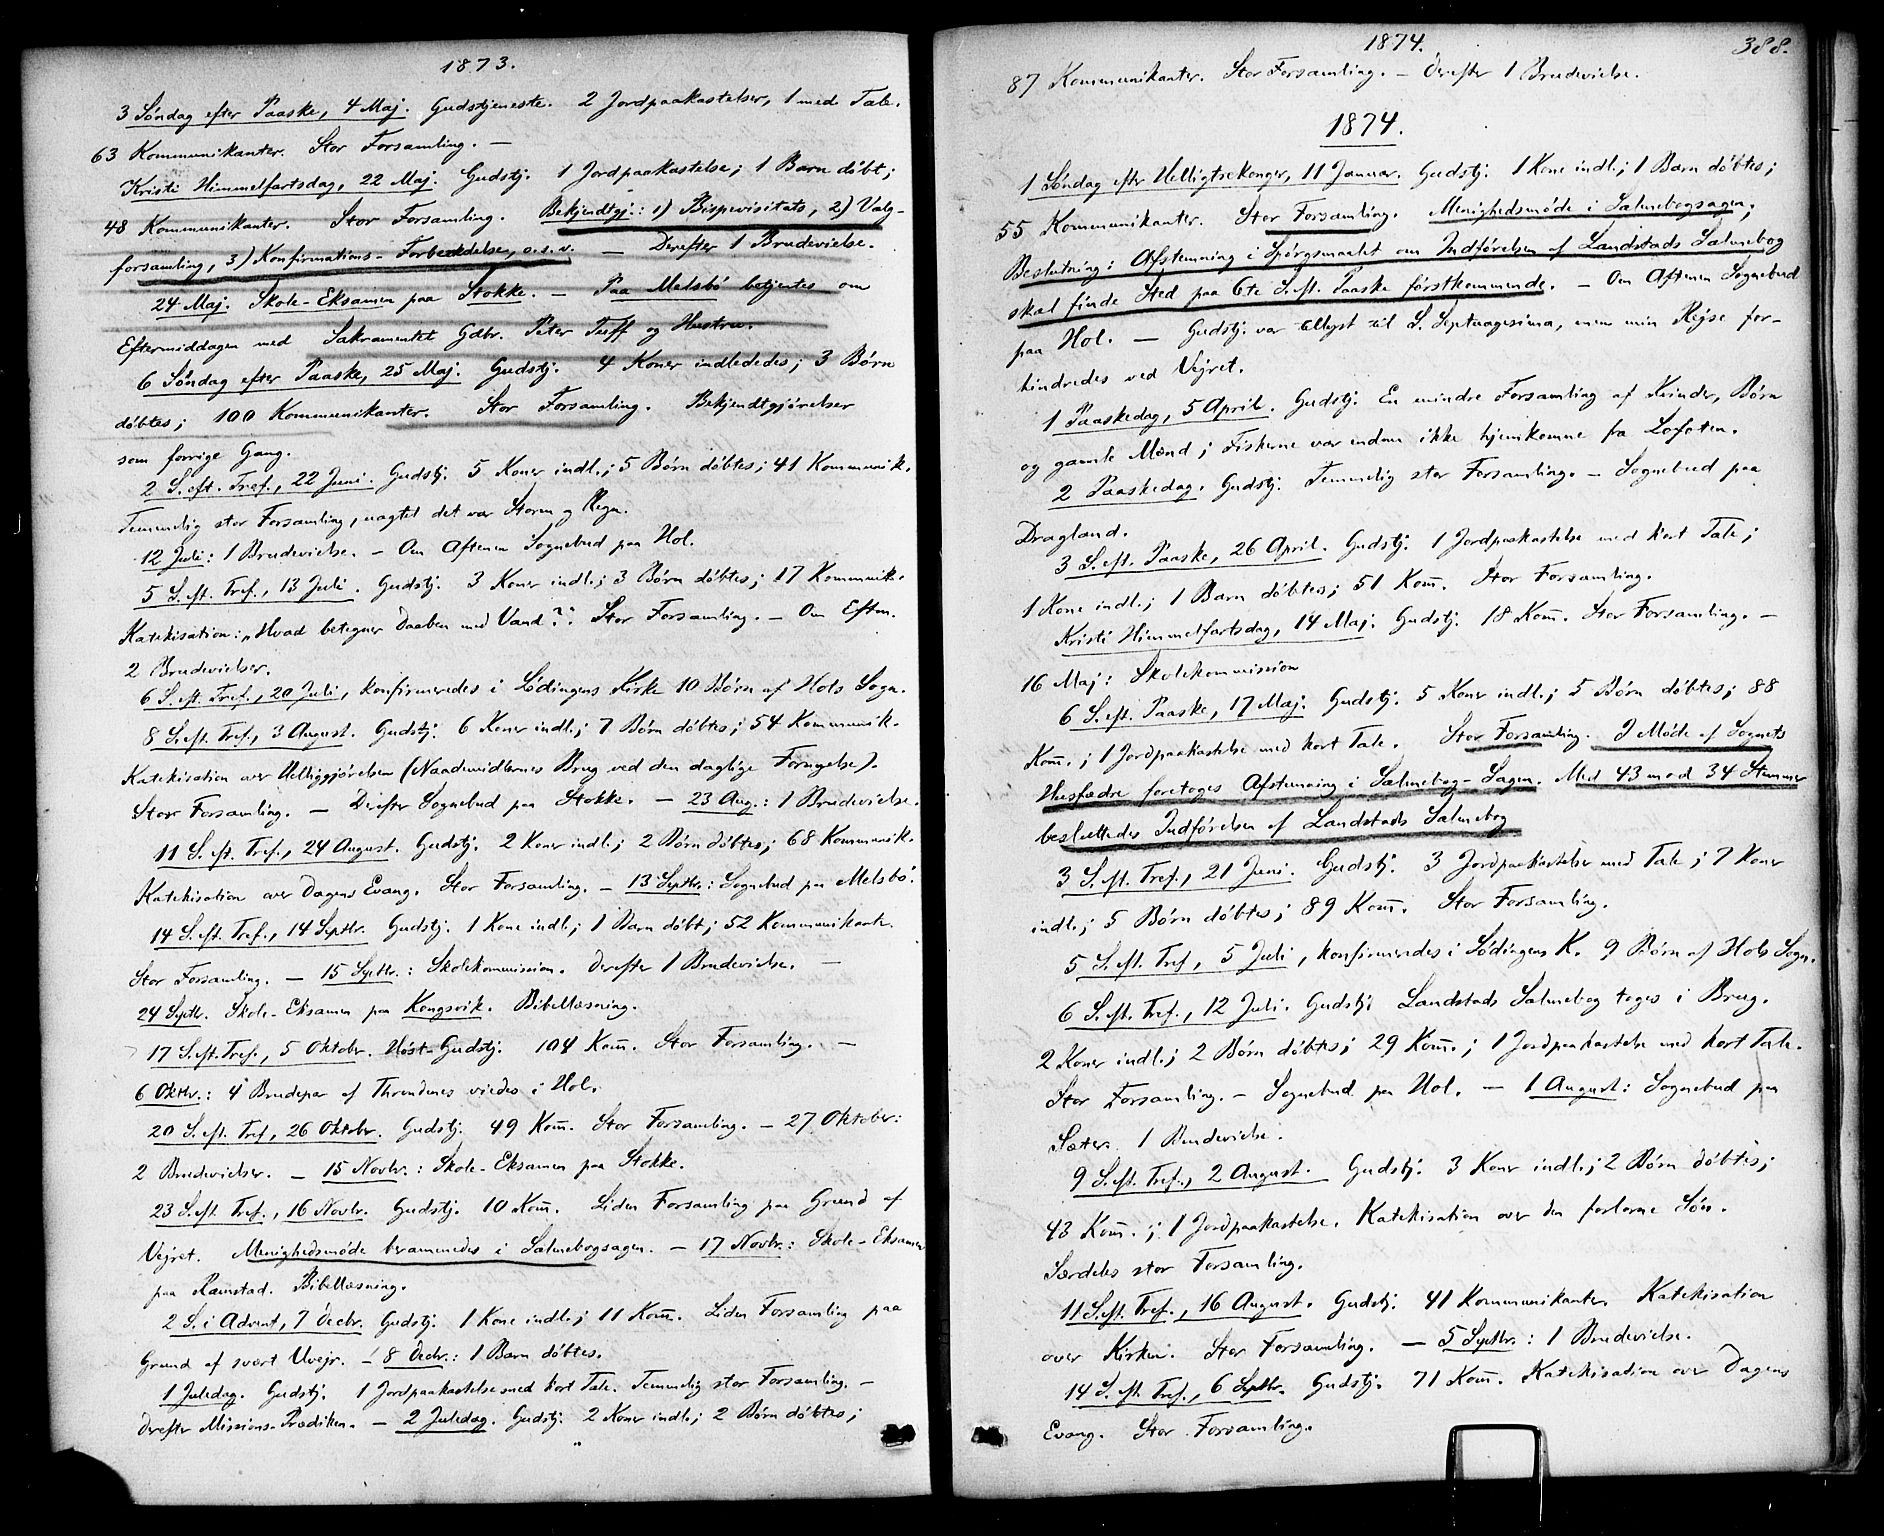 1873.
3 Søndag efter Paaske, 4 Maj. Gudstjeneste. 2 Jordpaakastelser, 1 med Tale.
63 Kommunikanter. Stor Forsamling. —
Kristi Himmelfartsdag, 22 Maj. Gudstj. 1 Jordpaakastelse; 1 Barn døbt;
48 Kommunikanter. Stor Forsamling. Bekjendtgj.: 1) Bispevisitats, 2) Valg-
forsamling, 3) Konfirmations-Forberedelse, o.s.v. — Derefter 1 Brudevielse.
24 Maj. Skole-Eksamen paa Stokke. — Paa Melsbø betjentes om
Eftermiddagen med Sakramentet Gdbr. Peter Tuff og Hustru.
6 Søndag efter Paaske, 25 Maj. Gudstj. 4 Koner indlededes; 3 Børn
døbtes; 100 Kommunikanter. Stor Forsamling. Bekjendtgjørelser
som forrige Gang.
2 S. eft. Tref., 22 Juni. Gudstj. 5 Koner indl.; 5 Børn døbtes; 41 Kommunik.
Temmelig stor Forsamling, uagtet det var Storm og Regn.
12 Juli: 1 Brudevielse. — Om Aftenen Sognebud paa Hol.
5 S. eft. Tref., 13 Juli. Gudstj. 3 Koner indl.; 3 Børn døbtes; 17 Kommunik.
Katekisation: „Hvad betegner Daaben med Vand?“ Stor Forsamling. — Om Efterm.
2 Brudevielser.
6 S. eft. Tref., 20 Juli, konfirmeredes i Lødingens Kirke 10 Børn af Hols Sogn.
8 S. eft. Tref., 3 August. Gudstj. 6 Koner indl.; 7 Børn døbtes; 54 Kommunik.
Katekisation over Helliggjørelsen (Naademidlernes Brug ved den daglige Fornyelse).
Stor Forsamling. — Derefter Sognebud paa Stokke. — 23 Aug.: 1 Brudevielse.
11 S. eft. Tref., 24 August. Gudstj. 2 Koner indl.; 2 Børn døbtes; 68 Kommunik.
Katekisation over Dagens Evang. Stor Forsamling. — 13 Septbr.: Sognebud paa Melsbø.
14 S. eft. Tref., 14 Septbr. Gudstj. 1 Kone indl.; 1 Barn døbt; 52 Kommunikant.
Stor Forsamling. — 15 Septbr.: Skolekommission. Derefter 1 Brudevielse. —
24 Septbr. Skole-Eksamen paa Kongsvik. Bibellæsning.
17 S. eft. Tref., 5 Oktobr. Høst-Gudstj. 104 Kom̅. Stor Forsamling. —
6 Oktbr.: 4 Brudepar af Throndenes viedes i Hol.
20 S. eft. Tref., 26 Oktobr. Gudstj. 49 Kom̅. Stor Forsamling. — 27 Oktober:
2 Brudevielser. — 15 Novbr.: Skole-Eksamen paa Stokke.
23 S. eft. Tref., 16 Novbr. Gudstj. 10 Kom̅. Liden Forsamling paa Grund af
Vejret. Menighedsmøde berammedes i Salmebogsagen. — 17 Novbr.: Skole-Eksamen
paa Ramstad. Bibellæsning.
2 S. i Advent, 7 Decbr. Gudstj. 1 Kone indl.; 11 Kom̅. Liden Forsamling paa
Grund af svært Uvejr. — 8 Decbr.: 1 Barn døbtes.
1 Juledag. Gudstj. 1 Jordpaakastelse med kort Tale. Temmelig stor Forsamling. —
Derefter Missions-Prædiken. — 2 Juledag. Gudstj. 2 Koner indl.; 2 Børn døbtes;
1874.
388.
87 Kommunikanter. Stor Forsamling. — Derefter 1 Brudevielse.
1874.
1 Søndag efter Helligtrekonger, 11 Januar. Gudstj. 1 Kone indl.; 1 Barn døbtes;
55 Kommunikanter. Stor Forsamling. Menighedsmøde i Salmebogsagen;
Beslutning: Afstemning i Spørgsmaalet om Indførelsen af Landstads Salmebog
skal finde Sted paa 6te S. eft. Paaske førstkommende. — Om Aftenen Sognebud
paa Hol. — Gudstj. var tillyst til S. Septuagesima, men min Rejse for-
hindredes ved Vejret.
1 Paaskedag, 5 April. Gudstj. En mindre Forsamling af Kvinder, Børn
og gamle Mænd; Fiskerne var endnu ikke hjemkomne fra Lofoten.
2 Paaskedag. Gudstj. Temmelig stor Forsamling. — Sognebud paa
Dragland.
3 S. eft. Paaske, 26 April. Gudstj. 1 Jordpaakastelse med kort Tale;
1 Kone indl.; 1 Barn døbtes; 51 Kom̅. Stor Forsamling.
Kristi Himmelfartsdag, 14 Maj. Gudstj. 18 Kom̅. Stor Forsamling. —
16 Maj: Skolekommission
6 S. eft. Paaske, 17 Maj. Gudstj. 5 Koner indl.; 5 Børn døbtes; 88
Kom̅.; 1 Jordpaakastelse med kort Tale. Stor Forsamling. I Møde af Sognets
Husfædre foretoges Afstemning i Salmebog-Sagen. Med 43 mod 34 Stemmer
besluttedes Indførelsen af Landstads Salmebog.
3 S. eft. Tref., 21 Juni. Gudstj. 3 Jordpaakastelser med Tale; 7 Koner
indl.; 5 Børn døbtes; 89 Kom̅. Stor Forsamling.
5 S. eft. Tref., 5 Juli, konfirmeredes i Lødingens K. 9 Børn af Hols Sogn.
6 S. eft. Tref., 12 Juli. Gudstj. Landstads Salmebog toges i Brug.
2 Koner indl.; 2 Børn døbtes; 29 Kom̅.; 1 Jordpaakastelse med kort Tale.
Stor Forsamling. — Sognebud paa Hol. — 1 August: Sognebud paa
Sæter. 1 Brudevielse.
9 S. eft. Tref., 2 August. Gudstj. 3 Koner indl.; 2 Børn døbtes;
43 Kom̅.; 1 Jordpaakastelse. Katekisation over den forlorne Søn.
Særdeles stor Forsamling.
11 S. eft. Tref., 16 August. Gudstj. 41 Kommunikanter. Katekisation
over Kirken. Stor Forsamling. — 5 Septbr.: 1 Brudevielse.
14 S. eft. Tref., 6 Septbr. Gudstj. 71 Kom̅. Katekisation over Dagens
Evang. Stor Forsamling.